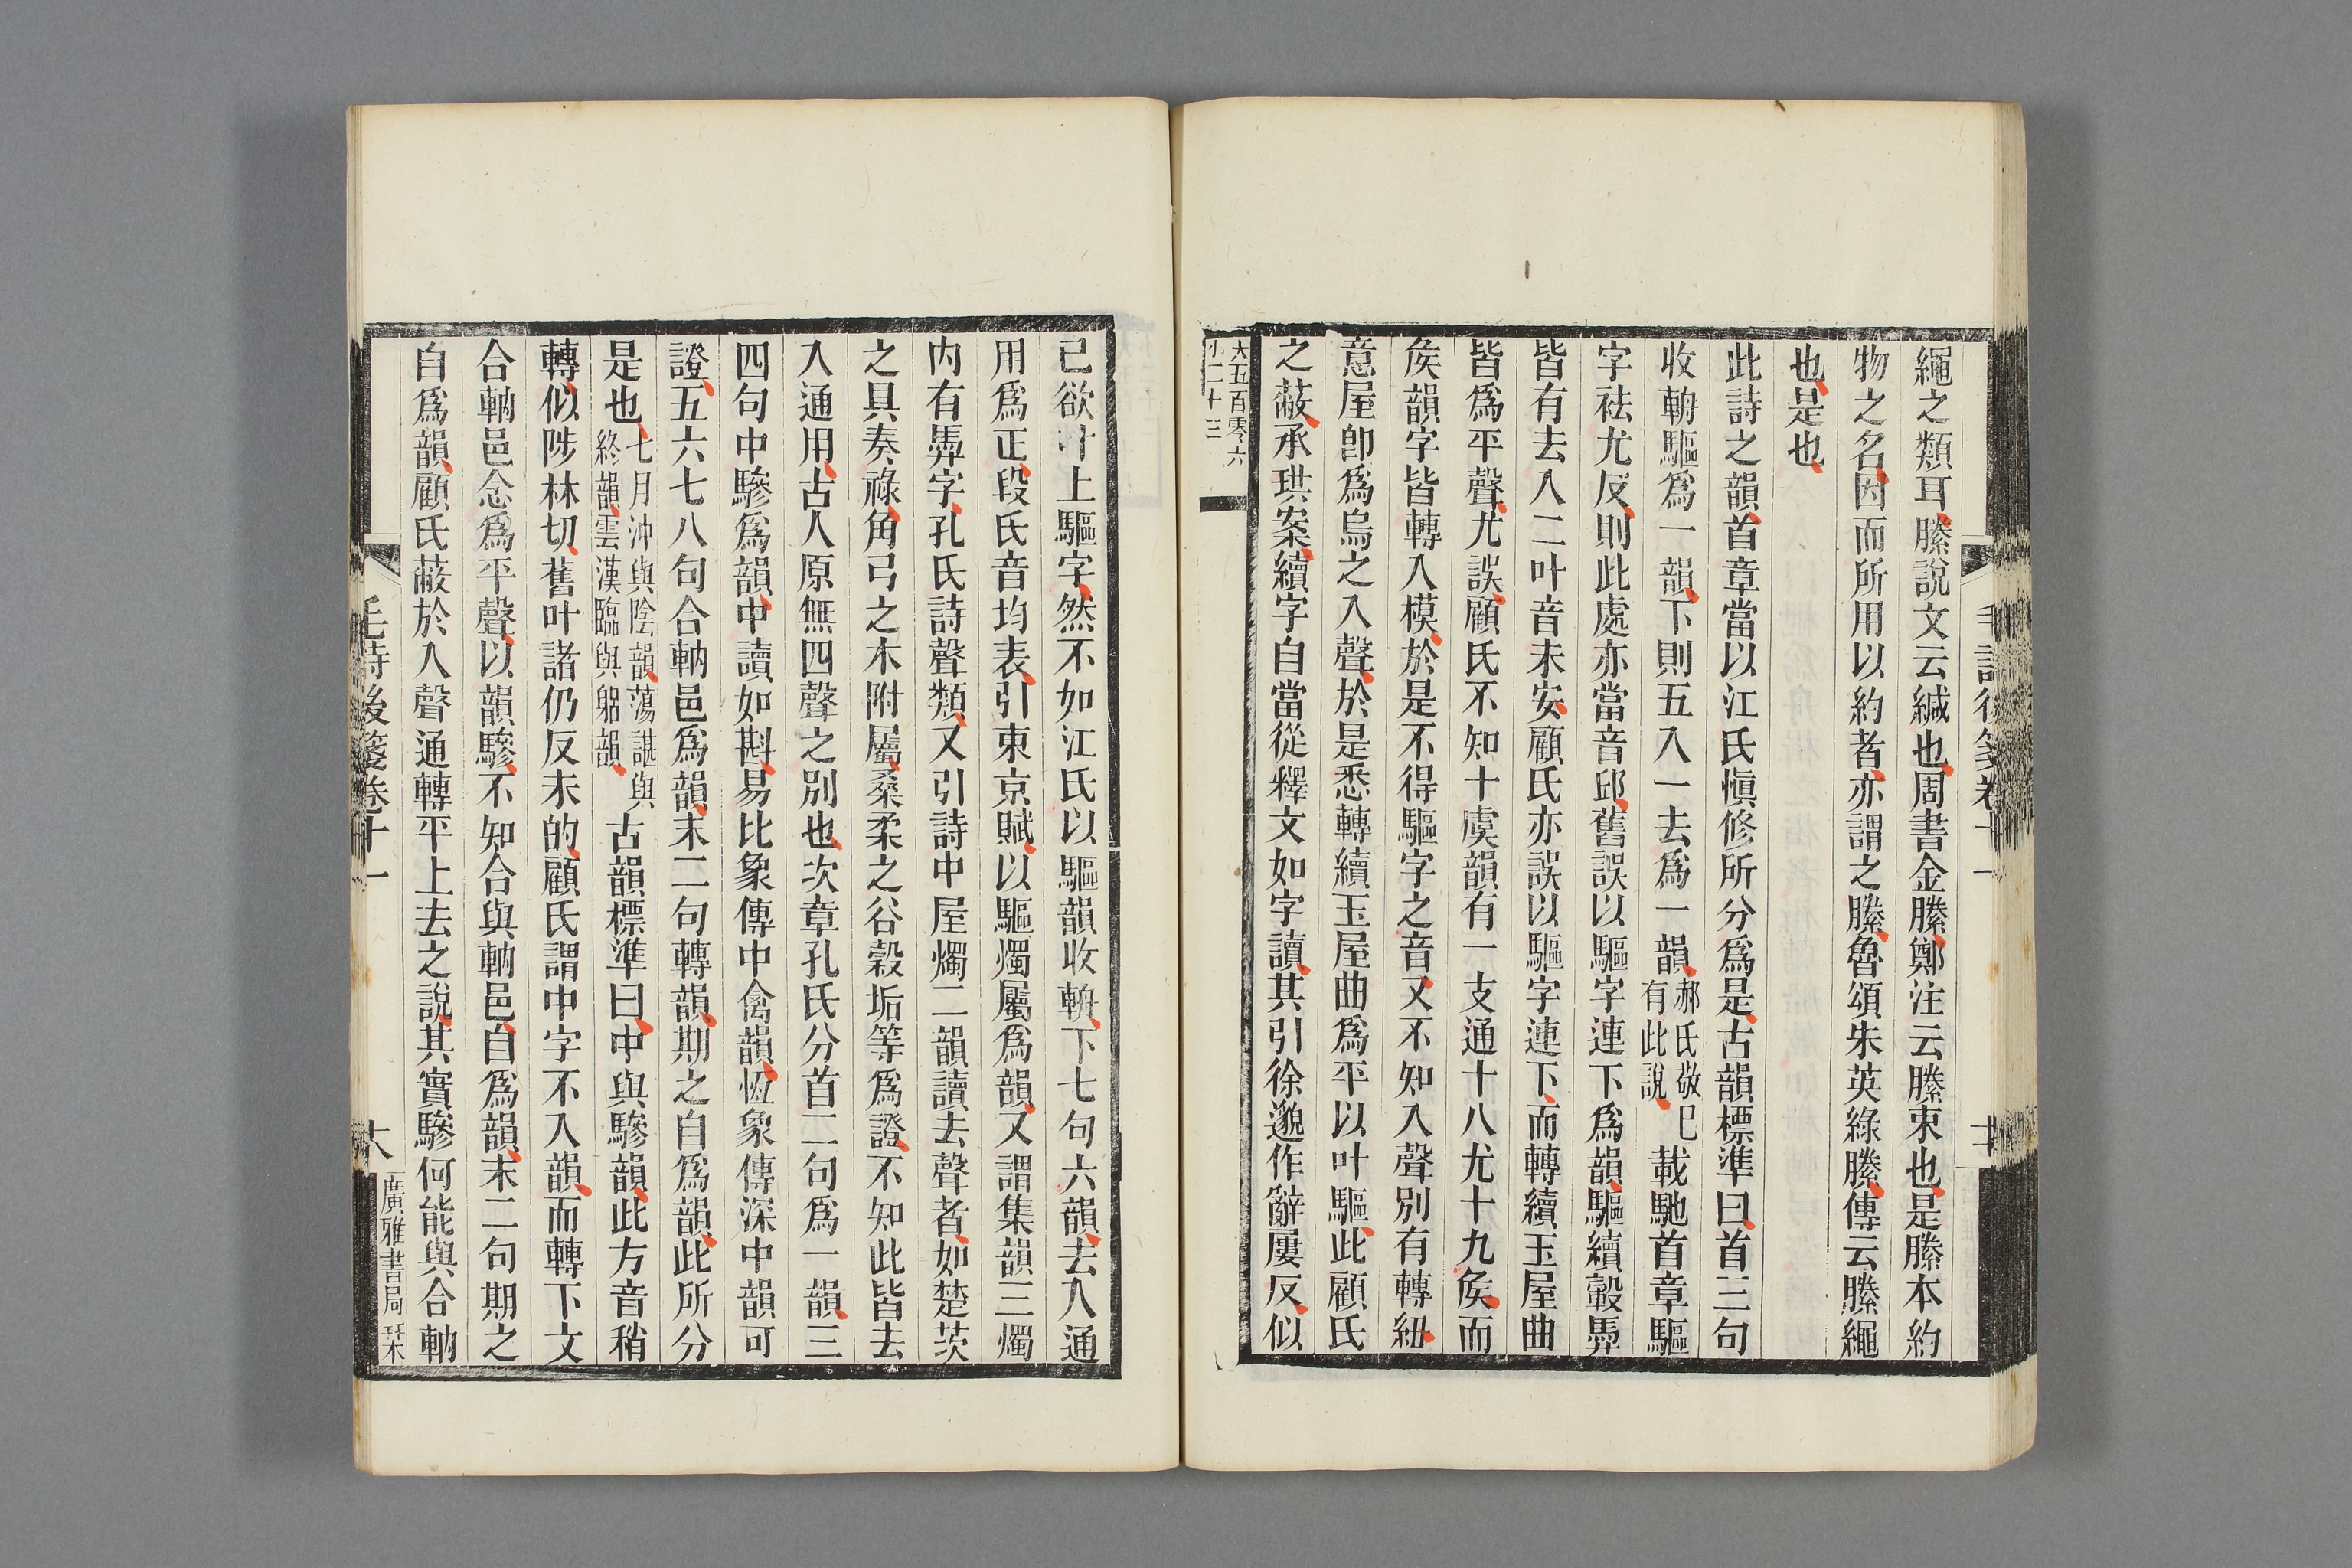 繩之類耳縢說文云緘也周書金縢鄭注云縢束也是縢本約
物之名因而所用以約者亦謂之縢魯頌朱英綠縢傳云縢繩
也是也
此詩之韻首章當以江氏愼修所分爲是古韻標準曰首三句
收輈驅爲一韻下則五入一去爲一韻郝氏敬已有此說載馳首章驅
字袪尤反則此處亦當音邱舊誤以驅字連下爲韻驅續轂馵
皆有去入二叶音未安顧氏亦誤以驅字連下而轉續玉屋曲
皆爲平聲尤誤顧氏不知十虞韻有一支通十八尤十九矦而
矦韻字皆轉入模於是不得驅字之音又不知入聲別有轉紐
意屋卽爲烏之入聲於是悉轉續玉屋曲爲平以叶驅此顧氏
之蔽承珙案續字自當從釋文如字讀其引徐邈作辭屢反似
大五百零六
小二十三
已欲叶上驅字然不如江氏以驅韻收輈下七句六韻去入通
用爲正段氏音均表引東京賦以驅燭屬爲韻又謂集韻三燭
內有馵字孔氏詩聲類又引詩中屋燭二韻讀去聲者如楚茨
之具奏祿角弓之木附屬桑柔之谷穀垢等爲證不知此皆去
入通用古人原無四聲之別也次章孔氏分首二句爲一韻三
四句中驂爲韻中讀如斟易比象傳中禽韻恆象傳深中韻可
證五六七八句合軜邑爲韻末二句轉韻期之自爲韻此所分
是也七月沖與陰韻蕩諶與終韻雲漢臨與躬韻古韻標準曰中與驂韻此方音稍
轉似陟林切舊叶諸仍反未的顧氏謂中字不入韻而轉下文
合軜邑念爲平聲以韻驂不知合與軜邑自爲韻末二句期之
自爲韻顧氏蔽於入聲通轉平上去之說其實驂何能與合軜
毛詩後箋卷十一
大
廣雅書局栞